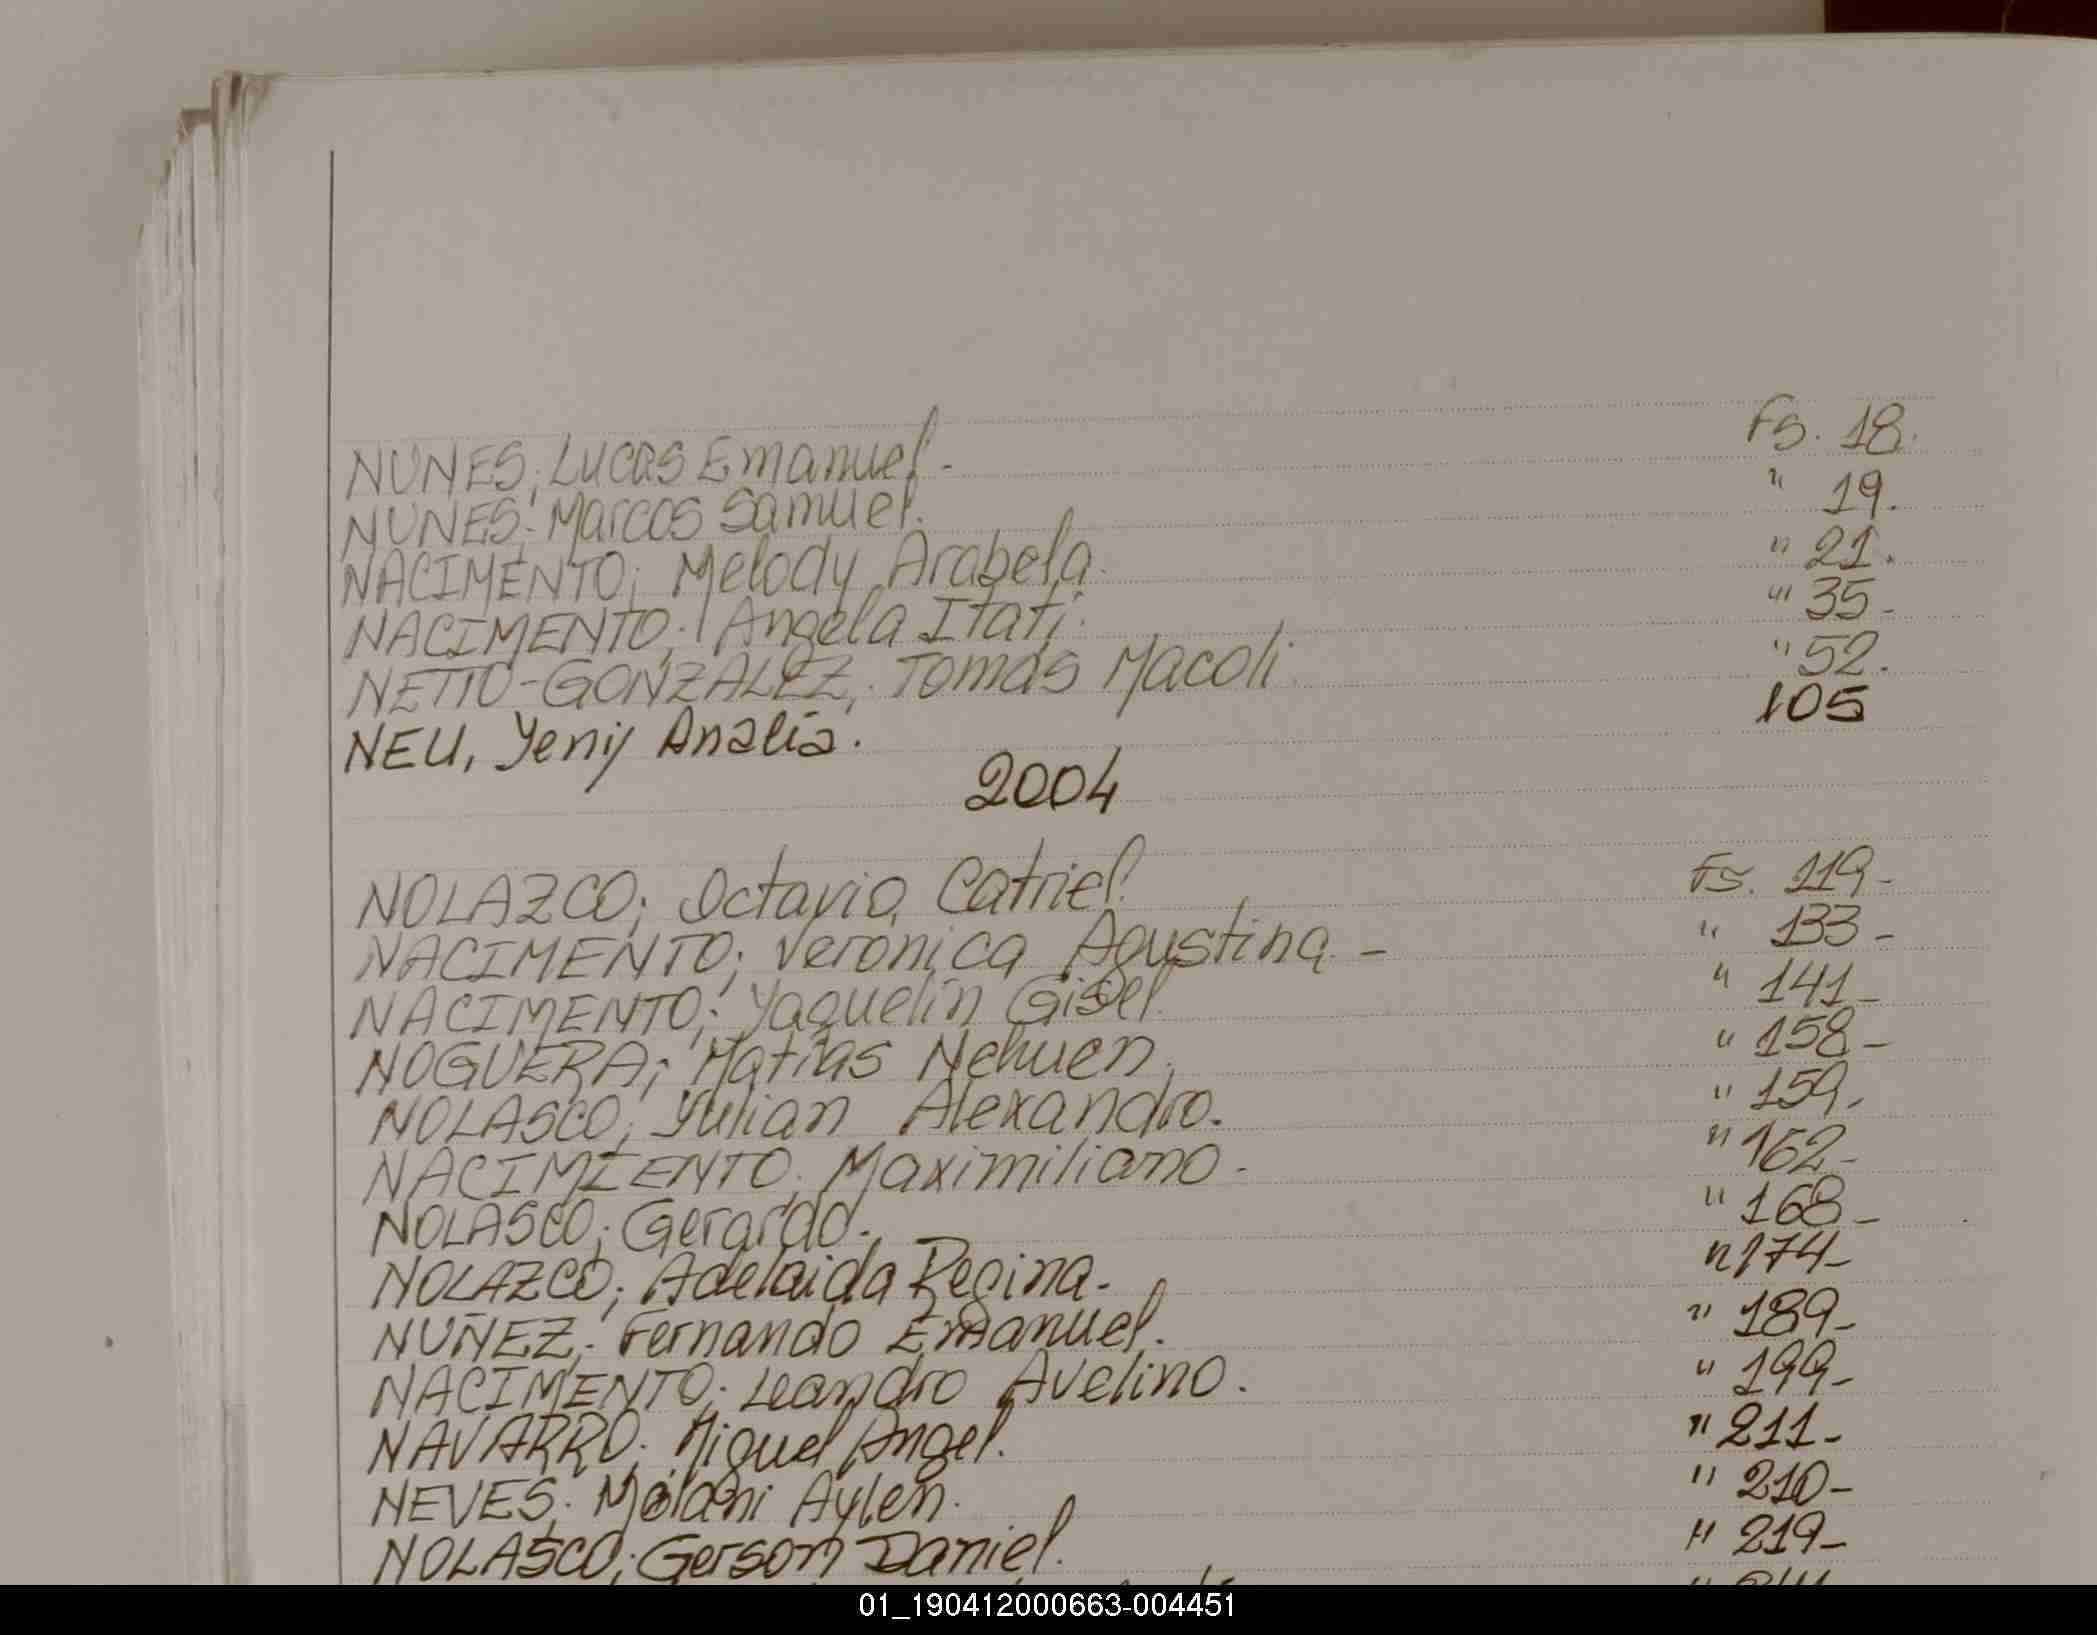 NUNES; Lucas Emanuel - Fs. 18.
NUNES; Marcos Samuel. " 19.
NACIMENTO; Melody Arabela. " 21.
NACIMENTO; Angela Itati. " 35-
NETTO-GONZALEZ; Tomás Macoli " 52.
NEU, Yeniy Analía. 105
2004
NOLAZCO; Octavio Catriel. Fs. 119-
NACIMENTO; Veronica Agustina - " 133-
NACIMENTO; Yaquelin Gisel. " 141-
NOGUERA; Matías Nehuen. " 158-
NOLASCO; Yulian Alexandro. " 159.
NACIMIENTO. Maximiliano - " 162-
NOLASCO; Gerardo. " 168-
NOLAZCO; Adelaida Regina - " 174-
NUÑEZ; Fernando Emanuel. " 189-
NACIMENTO; Leandro Avelino. " 199-
NAVARRO; Miguel Angel. " 211-
NEVES; Melani Aylen. " 210-
NOLASCO; Gerson Daniel. " 219-
01_190412000663-004451